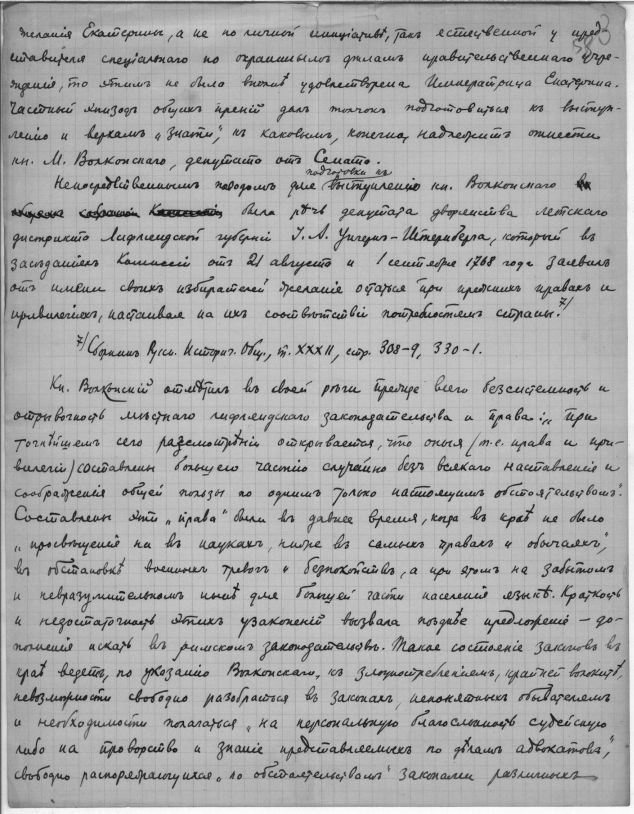 желанія Екатерины, а не по личной иниціативѣ, такъ естественной у пред-
ставителя спеціальнаго по окраиннымъ дѣламъ правительственнаго учре-
жденія, то этимъ не была вполнѣ удовлетворена Императрица Екатерина.
Частный эпизодъ общихъ преній далъ толчокъ подготовиться къ выступ-
ленію и верхамъ „знати", къ каковымъ, конечно, надлежитъ отнести
кн. М. Волконскаго, депутата отъ Сената.
подготовки къ
Непосредственнымъ поводомъ для выступленію кн. Волконскаго
собранія Коммиссіи была рѣчь депутата дворянства летскаго
дистрикта Лифляндской губерніи І. А. Унгернъ-Штернберга, который въ
засѣданіяхъ Комиссіи отъ 21 августа и 1 сентября 1768 года заявилъ
отъ имени своихъ избирателей желаніе остаться при прежнихъ правахъ и
привилегіяхъ, настаивая на ихъ соотвѣтствіи потребностямъ страны. 7/
7/ Сборникъ Русск. Историч. Общ., т. XXXII, стр. 308-9, 330-1.
Кн. Волконскій отмѣтилъ въ своей рѣчи прежде всего безсистемность и
отрывочность мѣстнаго лифляндскаго законодательства и права: „при
точнѣйшемъ сего разсмотрѣніи открывается, что оныя (т.е. права и при-
вилегіи) составлены большею частію случайно безъ всякаго наставленія и
соображенія общей пользы по однимъ только настоящимъ обстоятельствамъ".
Составлены эти „права" были въ давнее время, когда въ краѣ не было
„просвѣщенія ни въ наукахъ, ниже въ самыхъ правахъ и обычаяхъ",
въ обстановкѣ военныхъ тревогъ и безпокойствъ, а при этомъ на забытомъ
и невразумительномъ нынѣ для большей части населенія языкѣ. Краткость
и недостаточность этихъ узаконеній вызвала позднѣе предложеніе – до-
полненія искать въ римскомъ законодательствѣ. Такое состояніе законовъ въ
краѣ ведетъ, по указанію Волконскаго, къ злоупотребленіямъ, крайней волокитѣ,
невозможности свободно разобраться въ законахъ, непонятныхъ обывателямъ
и необходимости полагаться „на персональную благосклонность судейскую
либо на проворство и знаніе представляемыхъ по дѣламъ адвокатовъ",
свободно распоряжающихся „по обстоятельствамъ" законами различныхъ